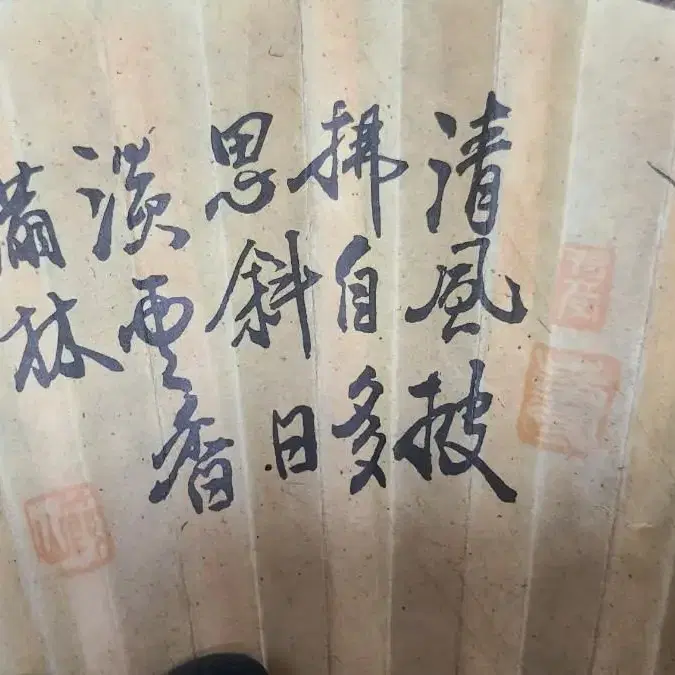 清風披
拂自多
思斜日
淡雲香
滿林